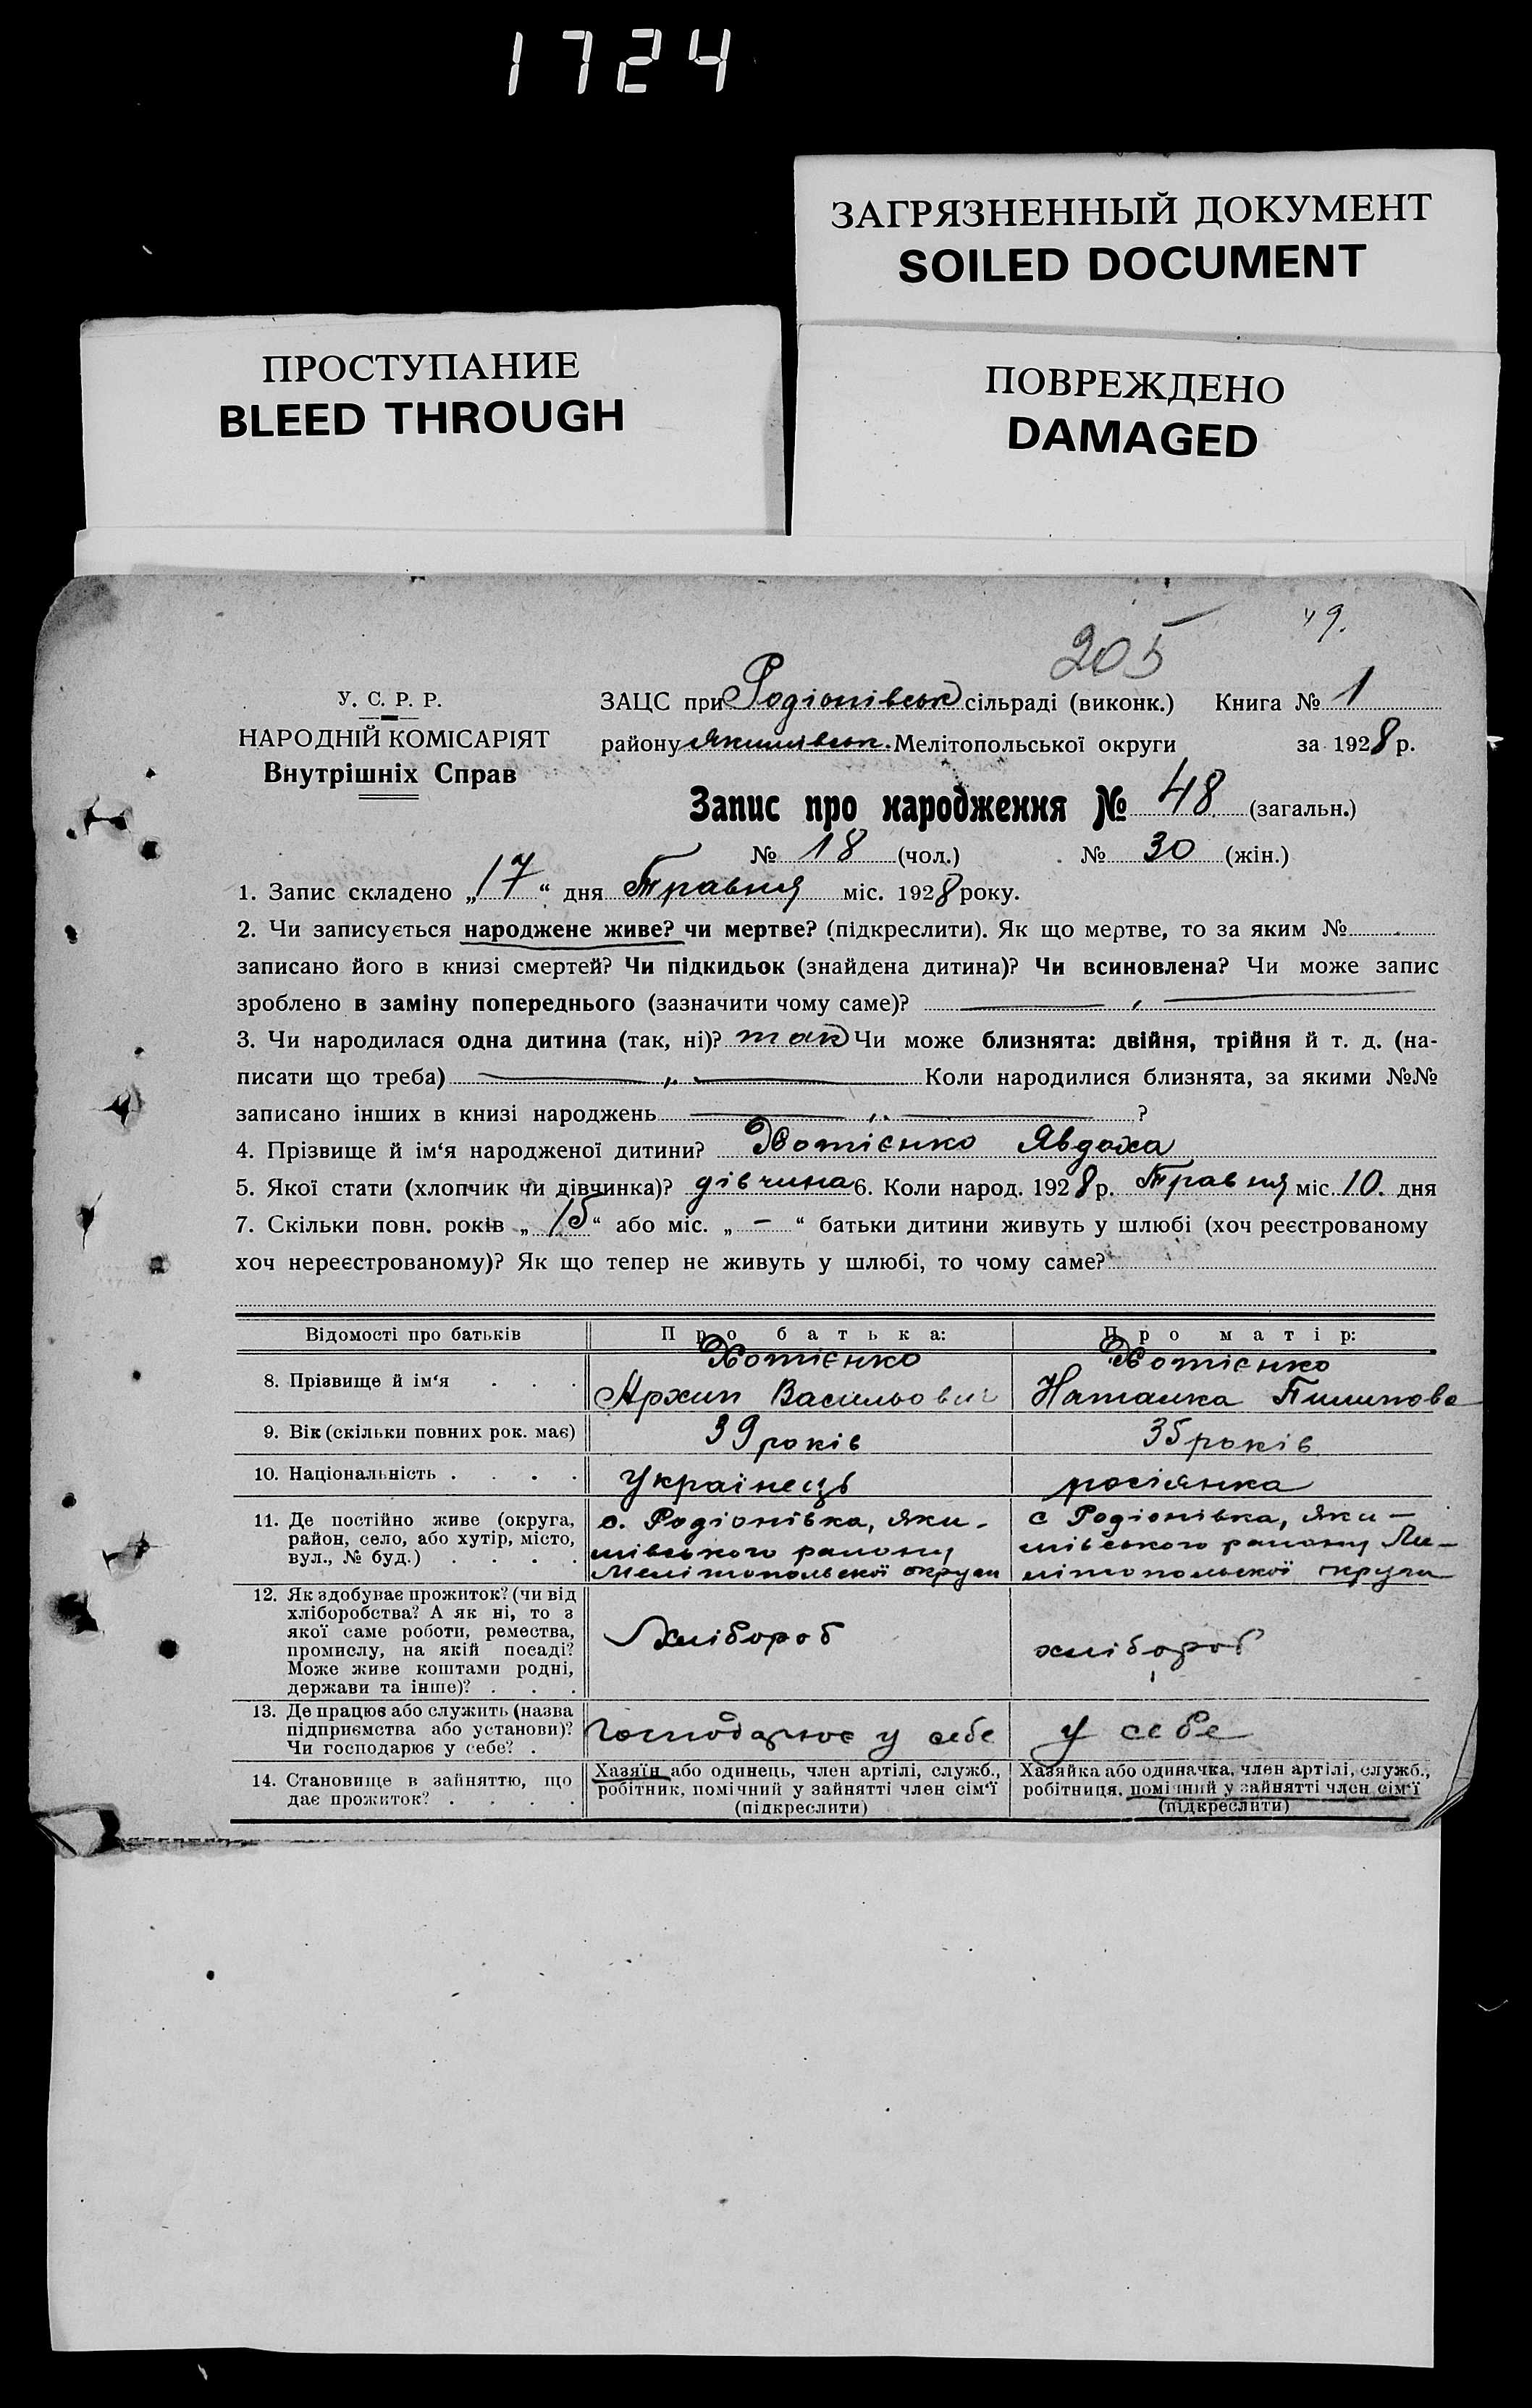 1724
ЗАГРЯЗНЕННЫЙ ДОКУМЕНТ
SOILED DOCUMENT
ПРОСТУПАНИЕ
BLEED THROUGH
ПОВРЕЖДЕНО
DAMAGED
49.
205
У. С. Р. Р.
НАРОДНІЙ КОМІСАРІЯТ
Внутрішніх Справ
ЗАЦС при Родіонівськ сільраді (виконк.) Книга № 1
району Якимівськ. Мелітопольської округи за 1928 р.
Запис про народження № 48 (загальн.)
№ 18 (чол.) № 30 (жін.)
1. Запис складено „17“ дня Травня міс. 1928 року.
2. Чи записується народжене живе? чи мертве? (підкреслити). Як що мертве, то за яким №
записано його в книзі смертей? Чи підкидьок (знайдена дитина)? Чи всиновлена? Чи може запис
зроблено в заміну попереднього (зазначити чому саме)?
3. Чи народилася одна дитина (так, ні)? так Чи може близнята: двійня, трійня й т. д. (на-
писати що треба) Коли народилися близнята, за якими №№
записано інших в книзі народжень ?
4. Прізвище й ім‘я народженої дитини? Хотієнко Явдоха
5. Якої стати (хлопчик чи дівчинка)? дівчина 6. Коли народ. 1928 р. Травня міс. 10. дня
7. Скільки повн. років „15“ або міс. „—“ батьки дитини живуть у шлюбі (хоч реєстрованому
хоч нереєстрованому)? Як що тепер не живуть у шлюбі, то чому саме?
Відомості про батьків
Про батька:
Про матір:
8. Прізвище й ім‘я . . .
Хотієнко
Архип Васильович
Хотієнко
Наталка Пилипова
9. Вік (скільки повних рок. має)
39 років
35 років
10. Національність . . . .
Українець
росіянка
11. Де постійно живе (округа,
район, село, або хутір, місто,
вул., № буд.) . . . .
с. Родіонівка, Яки-
мівського району
Мелітопольскої округи
с Родіонівка, Яки-
мівського району Ме-
літопольскої округи
12. Як здобуває прожиток? (чи від
хліборобства? А як ні, то з
якої саме роботи, ремества,
промислу, на якій посаді?
Може живе коштами родні,
держави та інше)? . . .
Хлібороб
хлібороб
13. Де працює або служить (назва
підприємства або установи)?
Чи господарює у себе? .
Господарює у себе
у себе
14. Становище в зайняттю, що
дає прожиток? . . . .
Хазяїн або одинець, член артілі, служб.,
робітник, помічний у зайнятті член сім‘ї
(підкреслити)
Хазяйка або одиначка, член артілі, служб.,
робітниця, помічний у зайнятті член сім‘ї
(підкреслити)